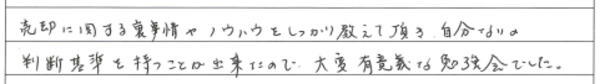 売却に関する裏事情やノウハウをしっかり教えて頂き、自分なりの
判断基準を持つことが出来たので、大変有意義な勉強会でした。